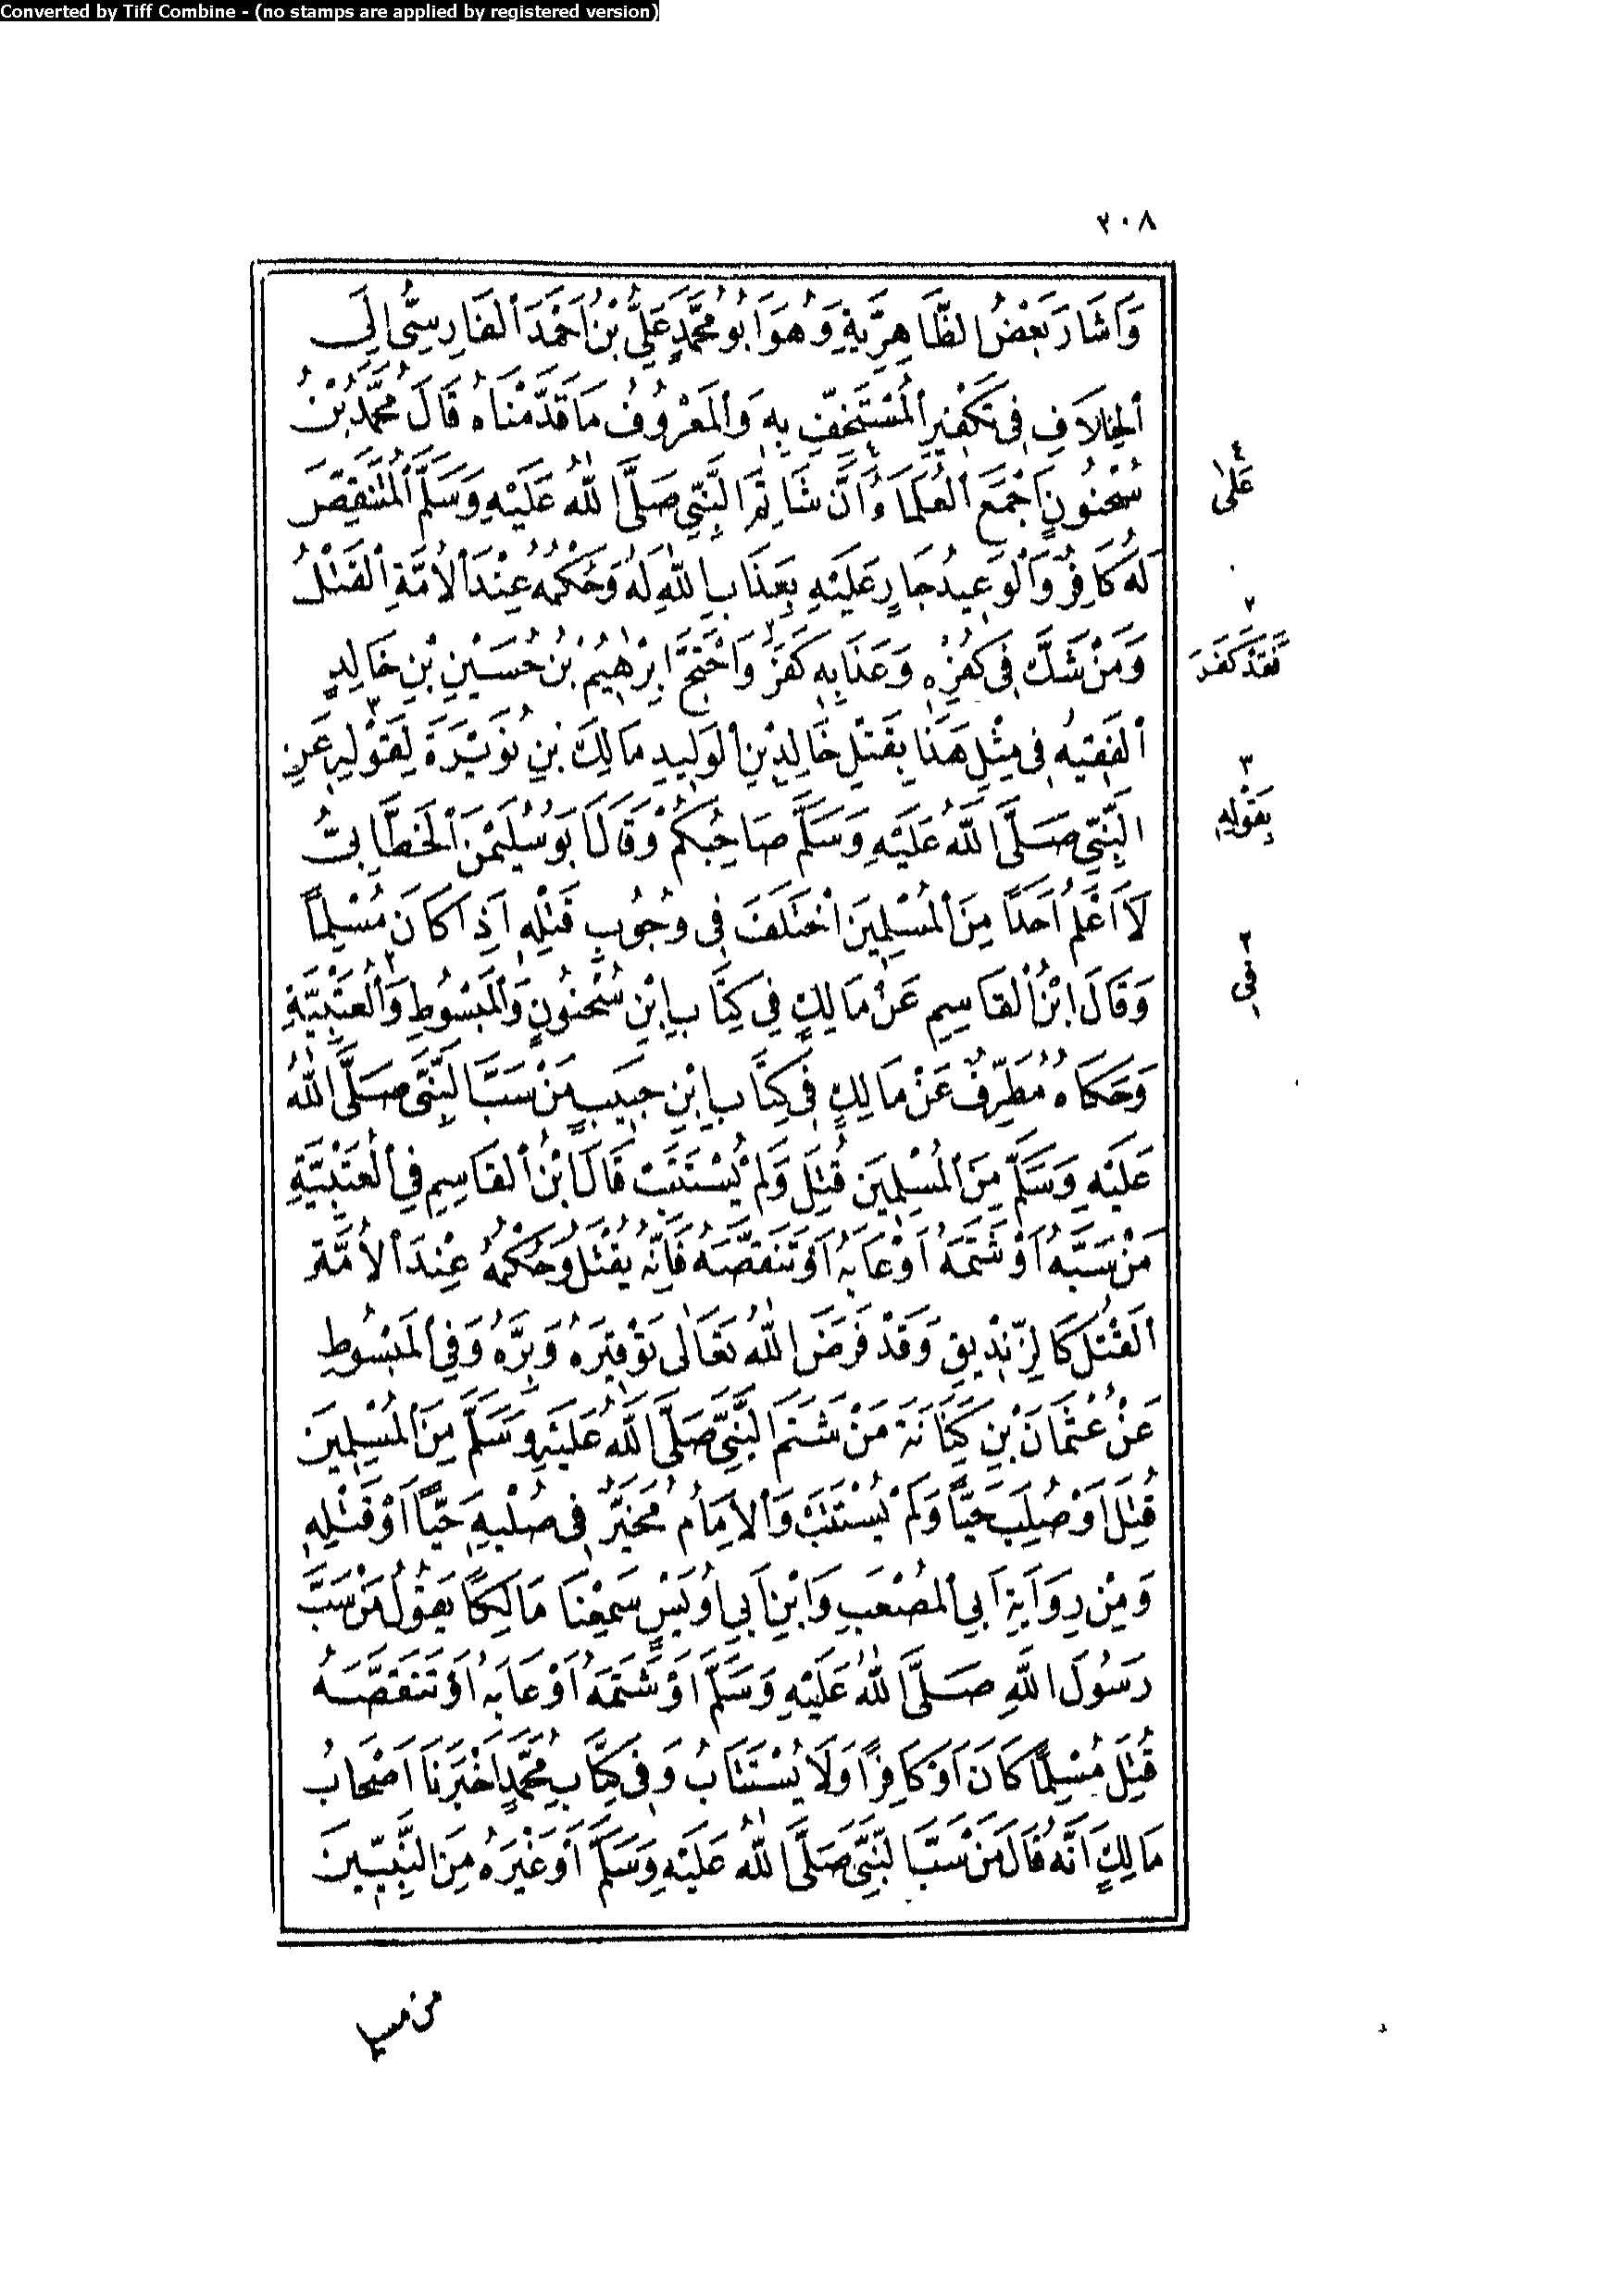 Converted by Tiff Combine - (no stamps are applied by registered version)
٢٠٨
وَأَشَارَ بَعْضُ الظَّاهِرِيَّةِ وَهُوَ أَبُو مُحَمَّدٍ عَلِيُّ بْنُ أَحْمَدَ الْفَارِسِيُّ إِلَى
الْخِلَافِ فِي تَكْفِيرِ الْمُسْتَخِفِّ بِهِ وَالْمَعْرُوفُ مَا قَدَّمْنَاهُ قَالَ مُحَمَّدُ بْنُ
سُحْنُونٍ أَجْمَعَ الْعُلَمَاءُ أَنَّ شَاتِمَ النَّبِيِّ صَلَّى اللّٰهُ عَلَيْهِ وَسَلَّمَ الْمُتَنَقِّصَ
٤
عَلَى
لَهُ كَافِرٌ وَالْوَعِيدُ جَارٍ عَلَيْهِ بِعَذَابِ اللّٰهِ لَهُ وَحُكْمُهُ عِنْدَ الْأُمَّةِ الْقَتْلُ
وَمَنْ شَكَّ فِي كُفْرِهِ وَعَذَابِهِ كَفَرَ وَاحْتَجَّ إِبْرٰهِيمُ بْنُ حُسَيْنِ بْنِ خَالِدٍ
٧
فَقَدْ كَفَرَ
الْفَقِيهُ فِي مِثْلِ هَذَا بِقَتْلِ خَالِدِ بْنِ الْوَلِيدِ مَالِكَ بْنِ نُوَيْرَةَ لِقَوْلِهِ عَنِ
٣
بِقَوْلِهِ
النَّبِيِّ صَلَّى اللّٰهُ عَلَيْهِ وَسَلَّمَ صَاحِبُكُمْ وَقَالَ أَبُو سُلَيْمٰنَ الْخَطَّابِيُّ
لَا أَعْلَمُ أَحَدًا مِنَ الْمُسْلِمِينَ اخْتَلَفَ فِي وُجُوبِ قَتْلِهِ إِذَا كَانَ مُسْلِمًا
وَقَالَ ابْنُ الْقَاسِمِ عَنْ مَالِكٍ فِي كِتَابِ ابْنِ سُحْنُونٍ وَالْمَبْسُوطِ وَالْعُتْبِيَّةِ
٢
فِي
وَحَكَاهُ مُطَرِّفٌ عَنْ مَالِكٍ فِي كِتَابِ ابْنِ حَبِيبٍ مَنْ سَبَّ النَّبِيَّ صَلَّى اللّٰهُ
عَلَيْهِ وَسَلَّمَ مِنَ الْمُسْلِمِينَ قُتِلَ وَلَمْ يُسْتَتَبْ قَالَ ابْنُ الْقَاسِمِ فِي الْعُتْبِيَّةِ
مَنْ سَبَّهُ أَوْ شَتَمَهُ أَوْ عَابَهُ أَوْ تَنَقَّصَهُ فَإِنَّهُ يُقْتَلُ وَحُكْمُهُ عِنْدَ الْأُمَّةِ
الْقَتْلُ كَالزِّنْدِيقِ وَقَدْ فَرَضَ اللّٰهُ تَعَالٰى تَوْقِيرَهُ وَبِرَّهُ وَفِي الْمَبْسُوطِ
عَنْ عُثْمَانَ بْنِ كِنَانَةَ مَنْ شَتَمَ النَّبِيَّ صَلَّى اللّٰهُ عَلَيْهِ وَسَلَّمَ مِنَ الْمُسْلِمِينَ
قُتِلَ أَوْ صُلِبَ حَيًّا وَلَمْ يُسْتَتَبْ وَالْإِمَامُ مُخَيَّرٌ فِي صُلْبِهِ حَيًّا أَوْ قَتْلِهِ
وَمِنْ رِوَايَةِ أَبِي الْمُصْعَبِ وَابْنِ أَبِي أُوَيْسٍ سَمِعْنَا مَالِكًا يَقُولُ مَنْ سَبَّ
رَسُولَ اللّٰهِ صَلَّى اللّٰهُ عَلَيْهِ وَسَلَّمَ أَوْ شَتَمَهُ أَوْ عَابَهُ أَوْ تَنَقَّصَهُ
قُتِلَ مُسْلِمًا كَانَ أَوْ كَافِرًا وَلَا يُسْتَتَابُ وَفِي كِتَابِ مُحَمَّدٍ أَخْبَرَنَا أَصْحَابُ
مَالِكٍ أَنَّهُ قَالَ مَنْ سَبَّ النَّبِيَّ صَلَّى اللّٰهُ عَلَيْهِ وَسَلَّمَ أَوْ غَيْرَهُ مِنَ النَّبِيِّينَ
من مسلم